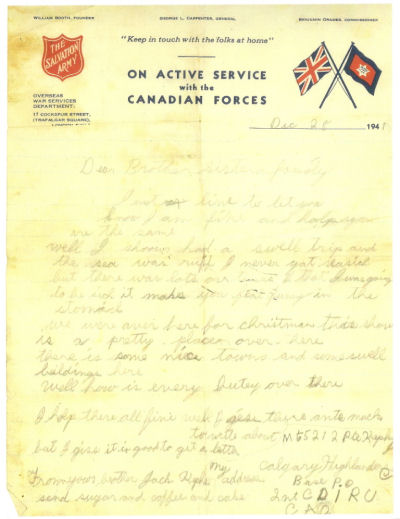 WILLIAM BOOTH, FOUNDER
GEORGE L. CARPENTER, GENERAL
BENJAMIN ORAMES, COMMISSIONER
"Keep in touch with the folks at home"
THE SALVATION ARMY
ON ACTIVE SERVICE
with the
CANADIAN FORCES
OVERSEAS
WAR SERVICES
DEPARTMENT:
17 COCKSPUR STREET,
(TRAFALGAR SQUARE),
Dec 28 194
Dear Brother sister & family
Just line to let you
know I am fine and hope you
are the same
well I had a swell trip and
the sea was ruff I never got
but there was lots I was going
to be sick it make you in the
stomach
we were over here for christmas this
is a pretty place over here
there is some nice towns and some swell
beldings here
well how is every butey over there
I hope there all fine well I gese there ante mach
to write about M55212 Pte
but I gise it is good to get a letter
my Calgary Highlanders
From your brother Jack address Base P.O
send sugar and coffee and cake 2nd C D I R U